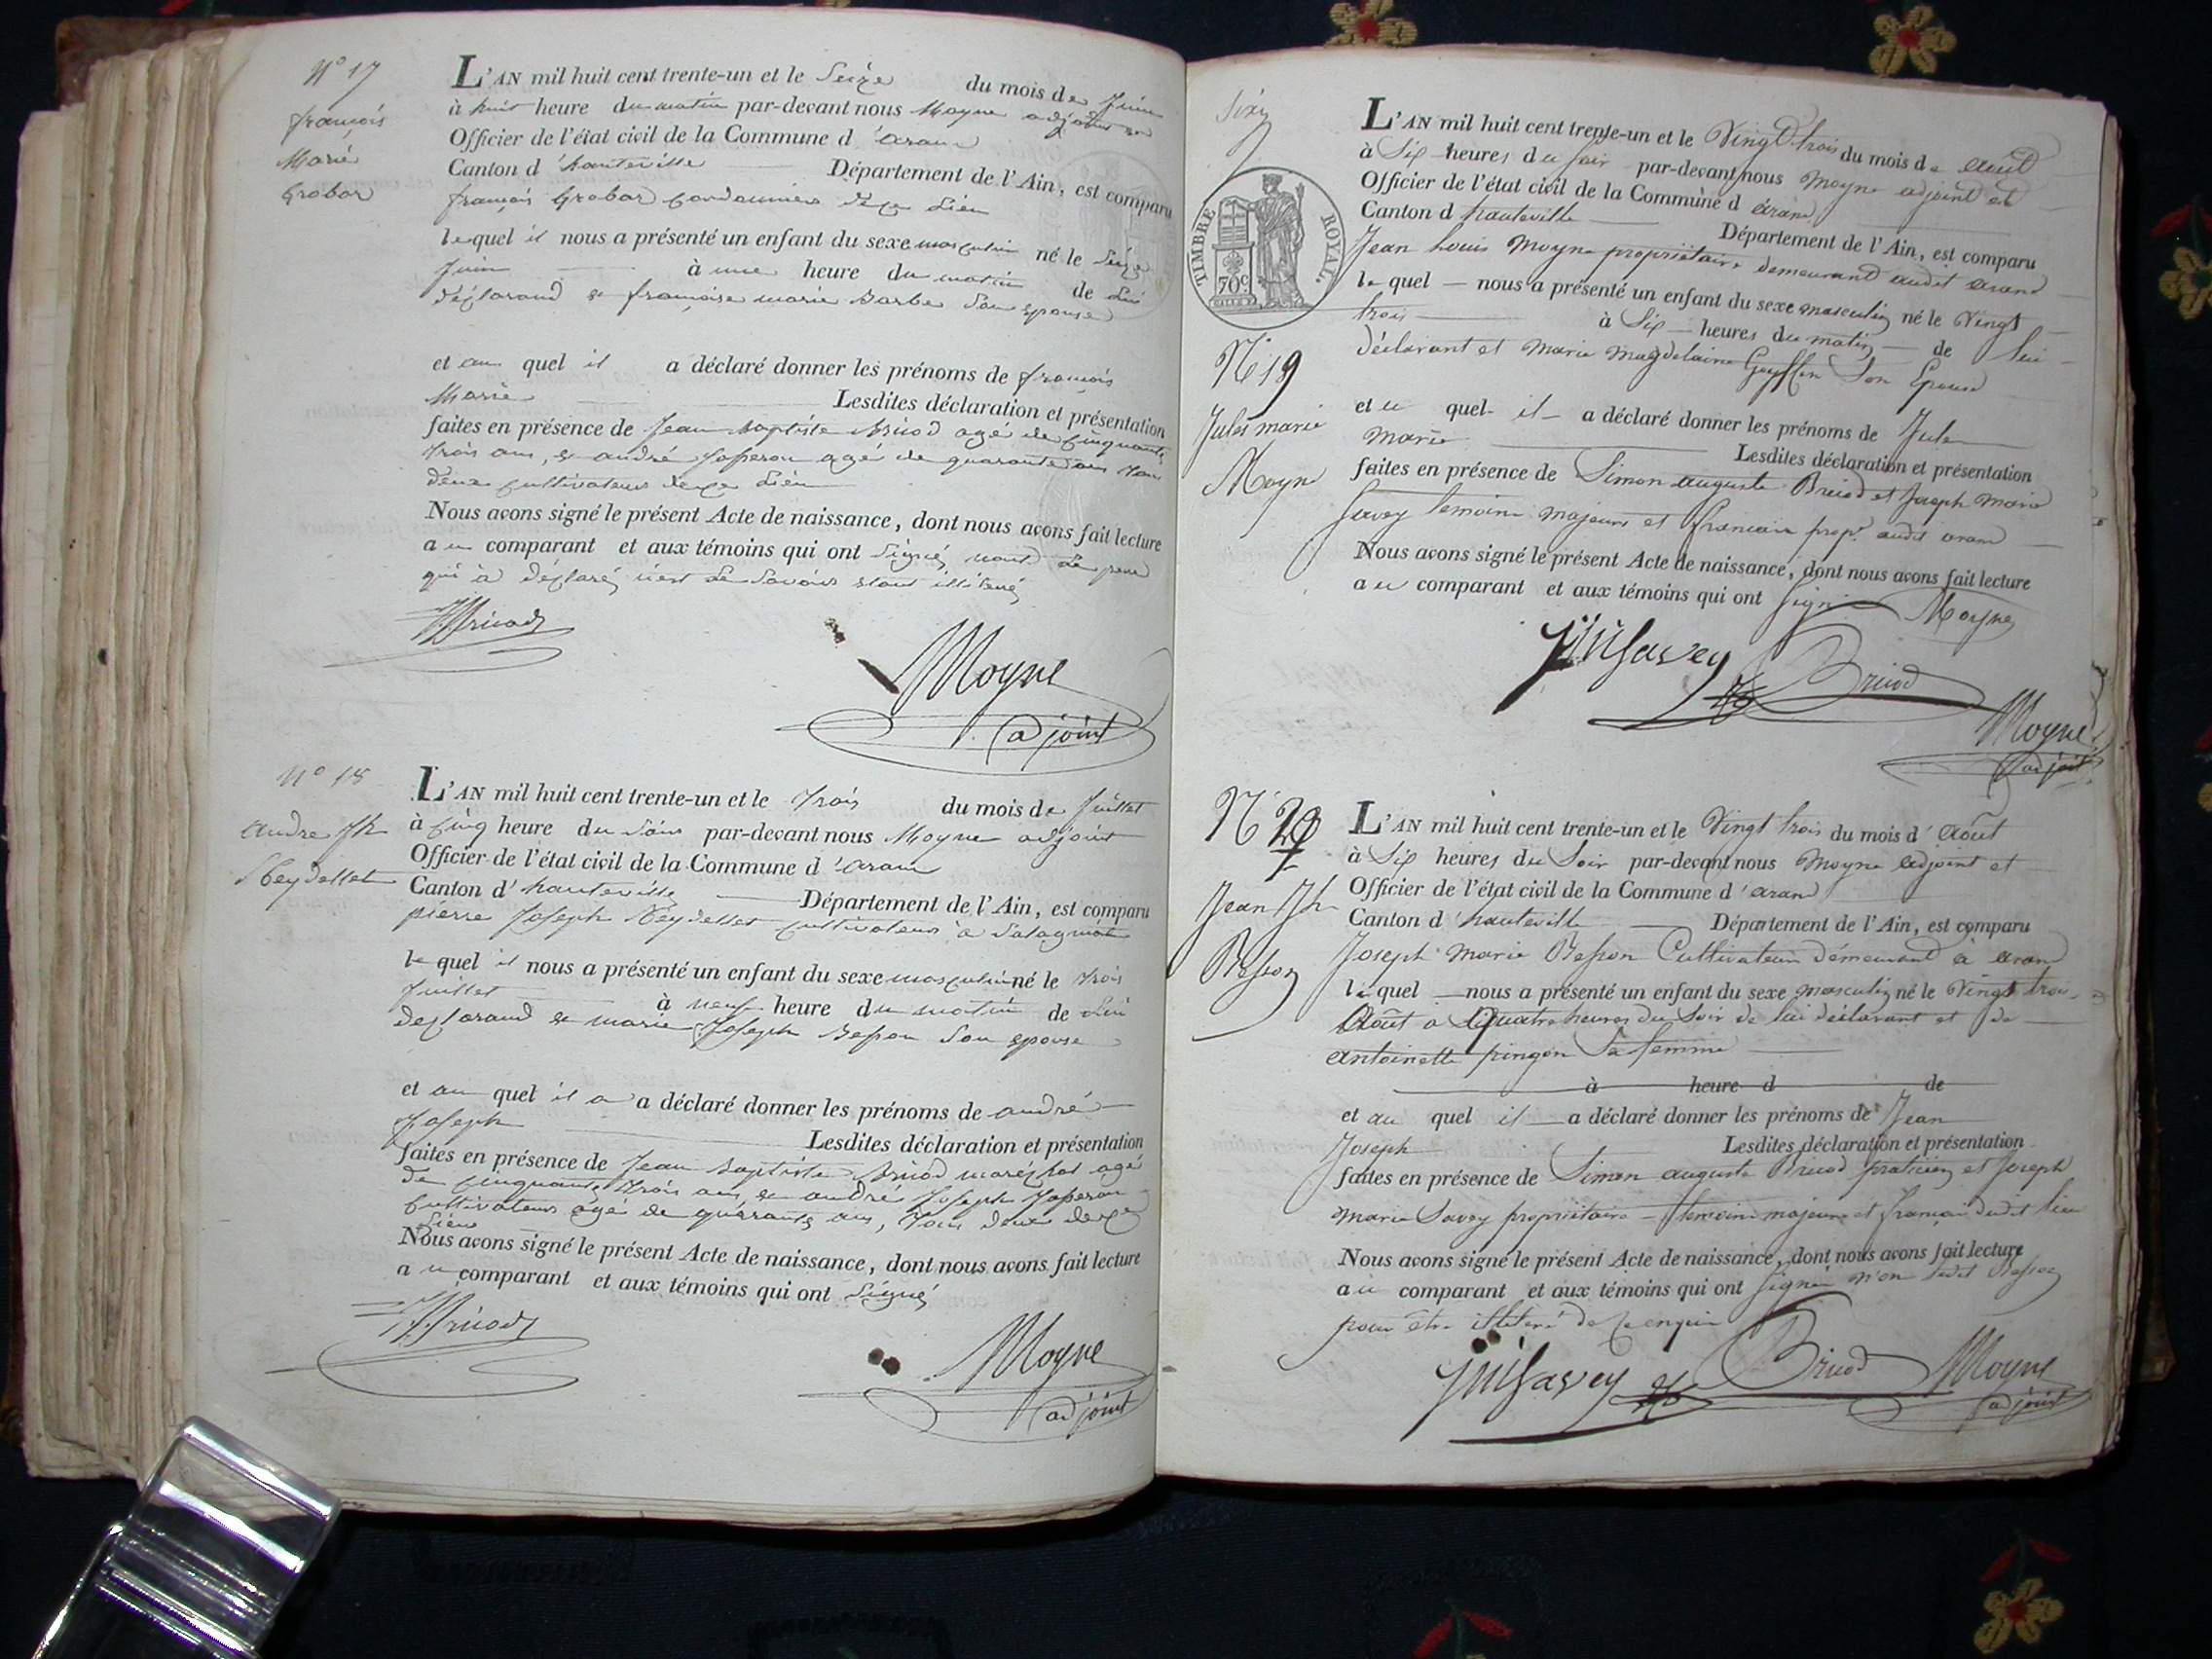 N° 17
françois
Marie
Grobas
L'AN mil huit cent trente-un et le Seize du mois de Juin
à huit heure du matin par-devant nous Moyne adjoint
Officier de l'état civil de la Commune d'aran
Canton d'hauteville Département de l'Ain, est comparu
françois Grobas Cordonnier Lieu
lequel il nous a présenté un enfant du sexe masculin né le Seize
Juin à une heure du matin de Lui
déclarand et françoise marie Barbe Son epouse
et au quel il a déclaré donner les prénoms de françois
Marie Lesdites déclaration et présentation
faites en présence de Jean Baptiste Bricod agé de Cinquante
trois ans, et andré Japeron agé de quarante ans tous
deux Cultivateurs Lieu
Nous avons signé le présent Acte de naissance, dont nous avons fait lecture
au comparant et aux témoins qui ont Signés Le pere
qui à déclaré Savoir etant illiteré
Bricod
Moyne
adjoint
N° 18
Andre Jh
Neydellet
L'AN mil huit cent trente-un et le trois du mois de Juillet
à Cinq heure du Soir par-devant nous Moyne adjoint
Officier de l'état civil de la Commune d'aran
Canton d'hauteville Département de l'Ain, est comparu
pierre Joseph Neydellet Cultivateur à
lequel il nous a présenté un enfant du sexe masculin né le trois
Juillet à neuf heure du matin de Lui
declarand et marie Joseph Besson Son epouse
et au quel il a a déclaré donner les prénoms de andré
Joseph Lesdites déclaration et présentation
faites en présence de Jean Baptiste Bricod maréchal agé
de Cinquante trois ans, et andré Joseph Japeron
Cultivateur agé de quarante ans, tous deux
Lieu
Nous avons signé le présent Acte de naissance, dont nous avons fait lecture
au comparant et aux témoins qui ont Signés
Bricod
Moyne
adjoint
TIMBRE ROYAL
70c
N° 19
Jules marie
Moyne
L'AN mil huit cent trente-un et le Vingt trois du mois de août
à Six heures du Soir par-devant nous Moyne adjoint et
Officier de l'état civil de la Commune d'aran
Canton d hauteville Département de l'Ain, est comparu
Jean Louis Moyne propriétaire demeurant audit aran
lequel nous a présenté un enfant du sexe masculin né le Vingt
trois à Six heures du matin de Lui
déclarant et Marie Magdelaine Son Epouse
et au quel il a déclaré donner les prénoms de Jule
Marie Lesdites déclaration et présentation
faites en présence de Simon auguste Bricod et Joseph Marie
Savey temoins majeurs et français prop.re audit aran
Nous avons signé le présent Acte de naissance, dont nous avons fait lecture
au comparant et aux témoins qui ont signé Moyne
JM Savey
Bricod
Moyne
adjoint
N° 20
Jean Jh
Besson
L'AN mil huit cent trente-un et le Vingt trois du mois d'août
à Six heures du Soir par-devant nous Moyne adjoint et
Officier de l'état civil de la Commune d'aran
Canton d'hauteville Département de l'Ain, est comparu
Joseph Marie Besson Cultivateur démeurant à aran
lequel nous a présenté un enfant du sexe masculin né le Vingt trois
Août a Quatre heures du Soir de lui déclarant et de
antoinette pingon Sa femme
à heure d de
et au quel il a déclaré donner les prénoms de Jean
Joseph Lesdites déclaration et présentation
faites en présence de Simon auguste Bricod praticien et Joseph
Marie Savey propriétaire temoins majeurs et français dudit lieu
Nous avons signé le présent Acte de naissance, dont nous avons fait lecture
au comparant et aux témoins qui ont signés non ledit Besson
pour être illiteré de ce enquis
JM Savey
Bricod
Moyne
adjoint